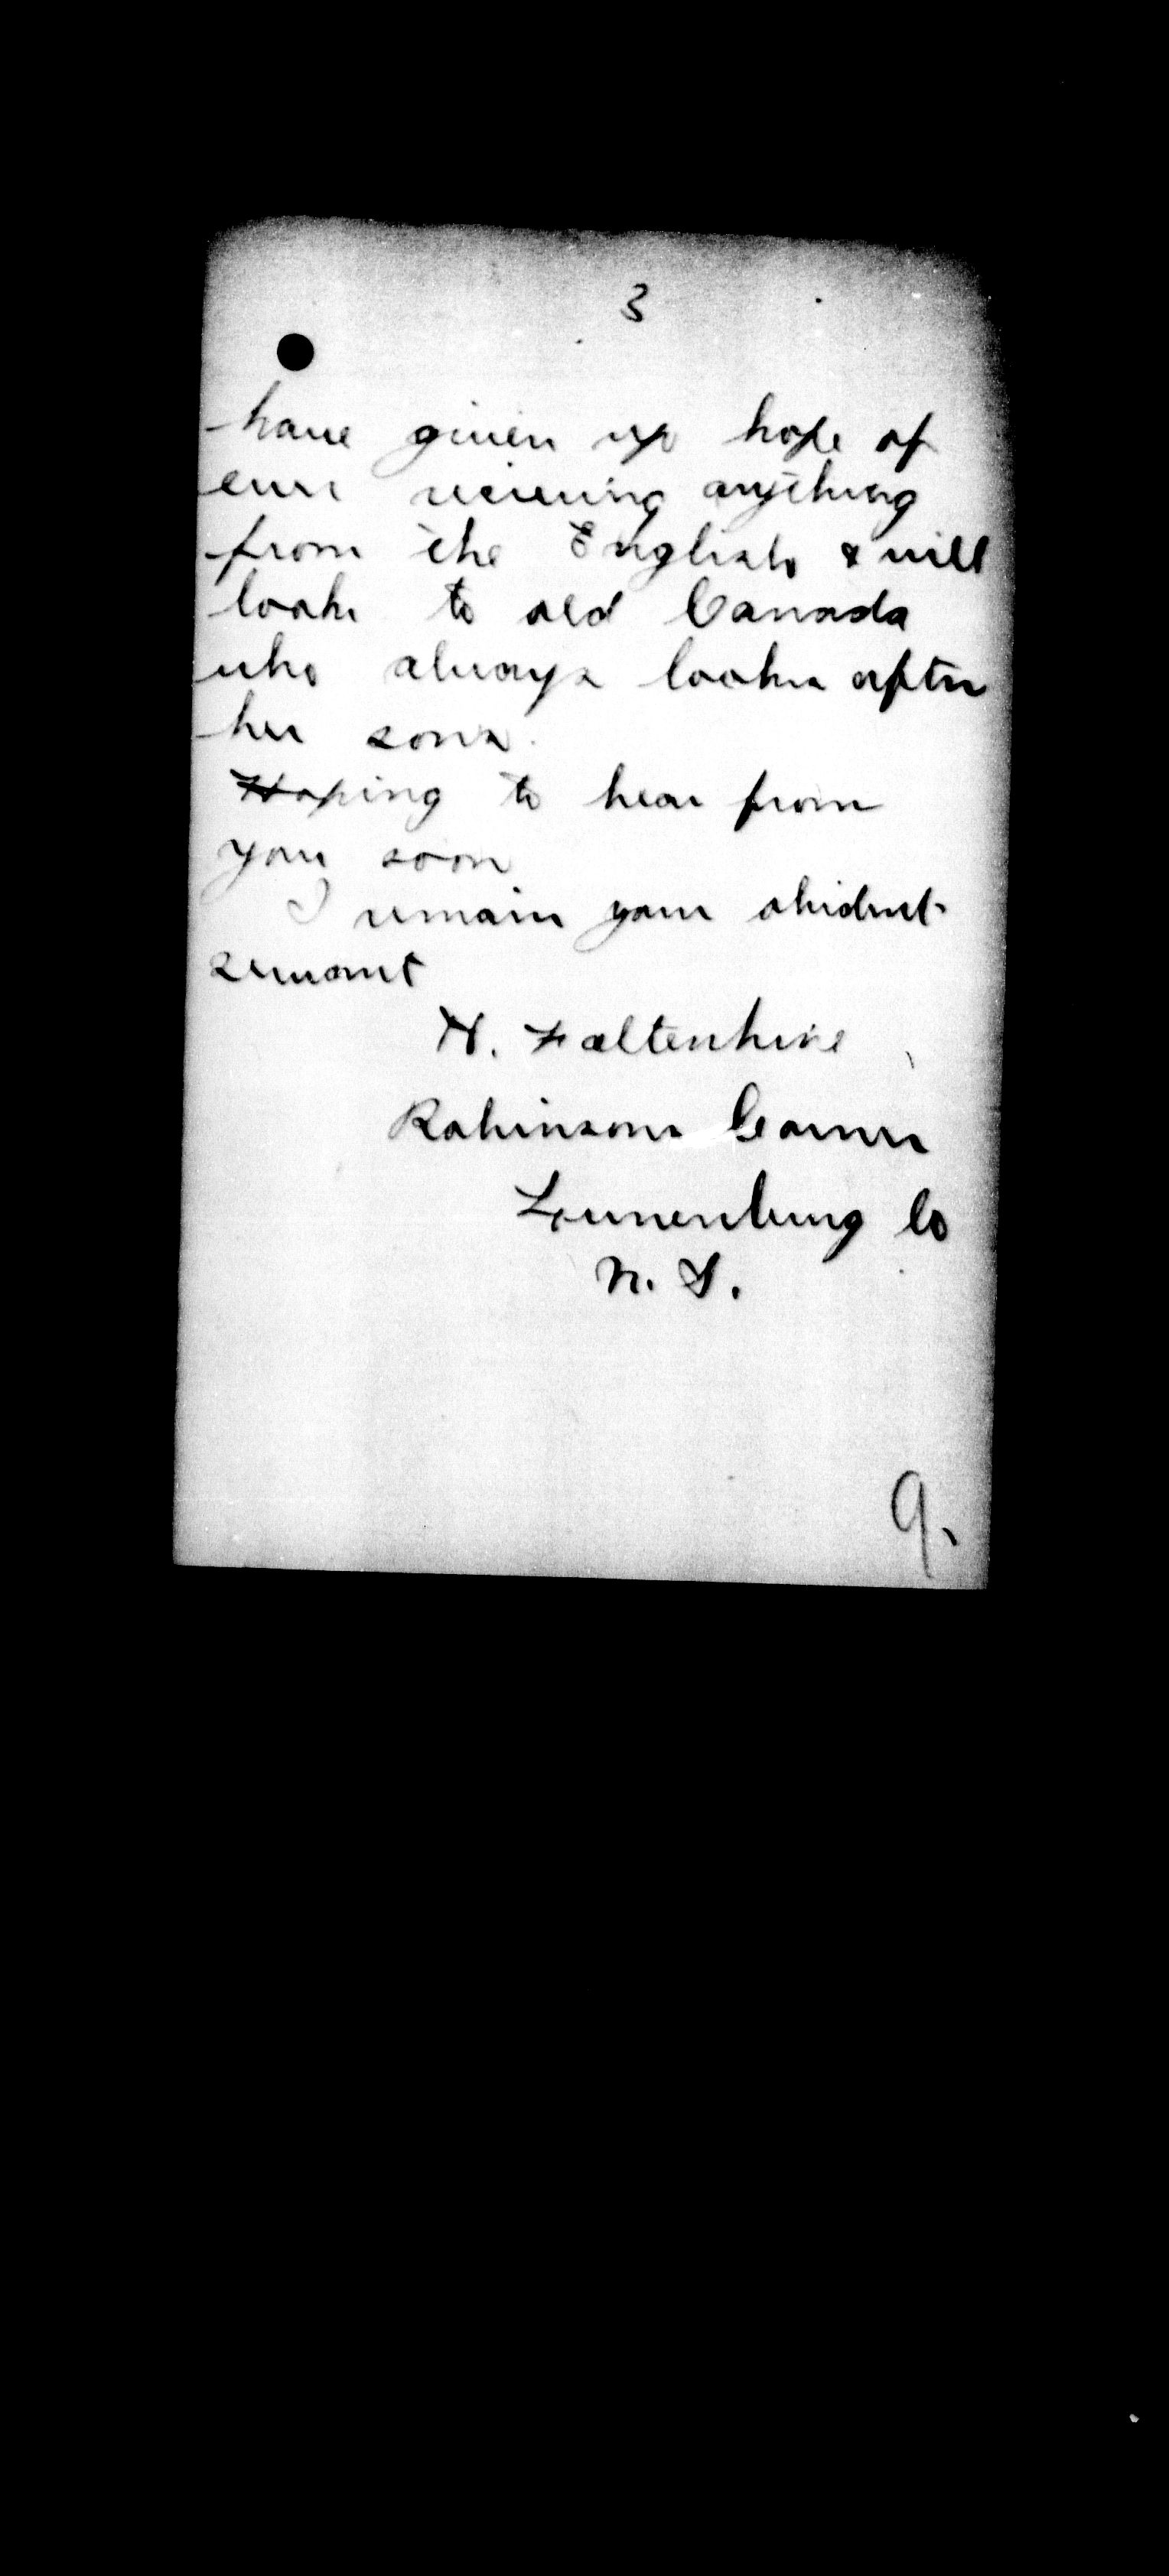 3
have given up hope of
ever recieving anything
from the English & will
look to old Canada
who always looks after
her sons.
Hoping to hear from
you soon
I remain your obident
servant
N. Faltenhine
Robinsons Corner
Lunenburg Co
N. S.
9.